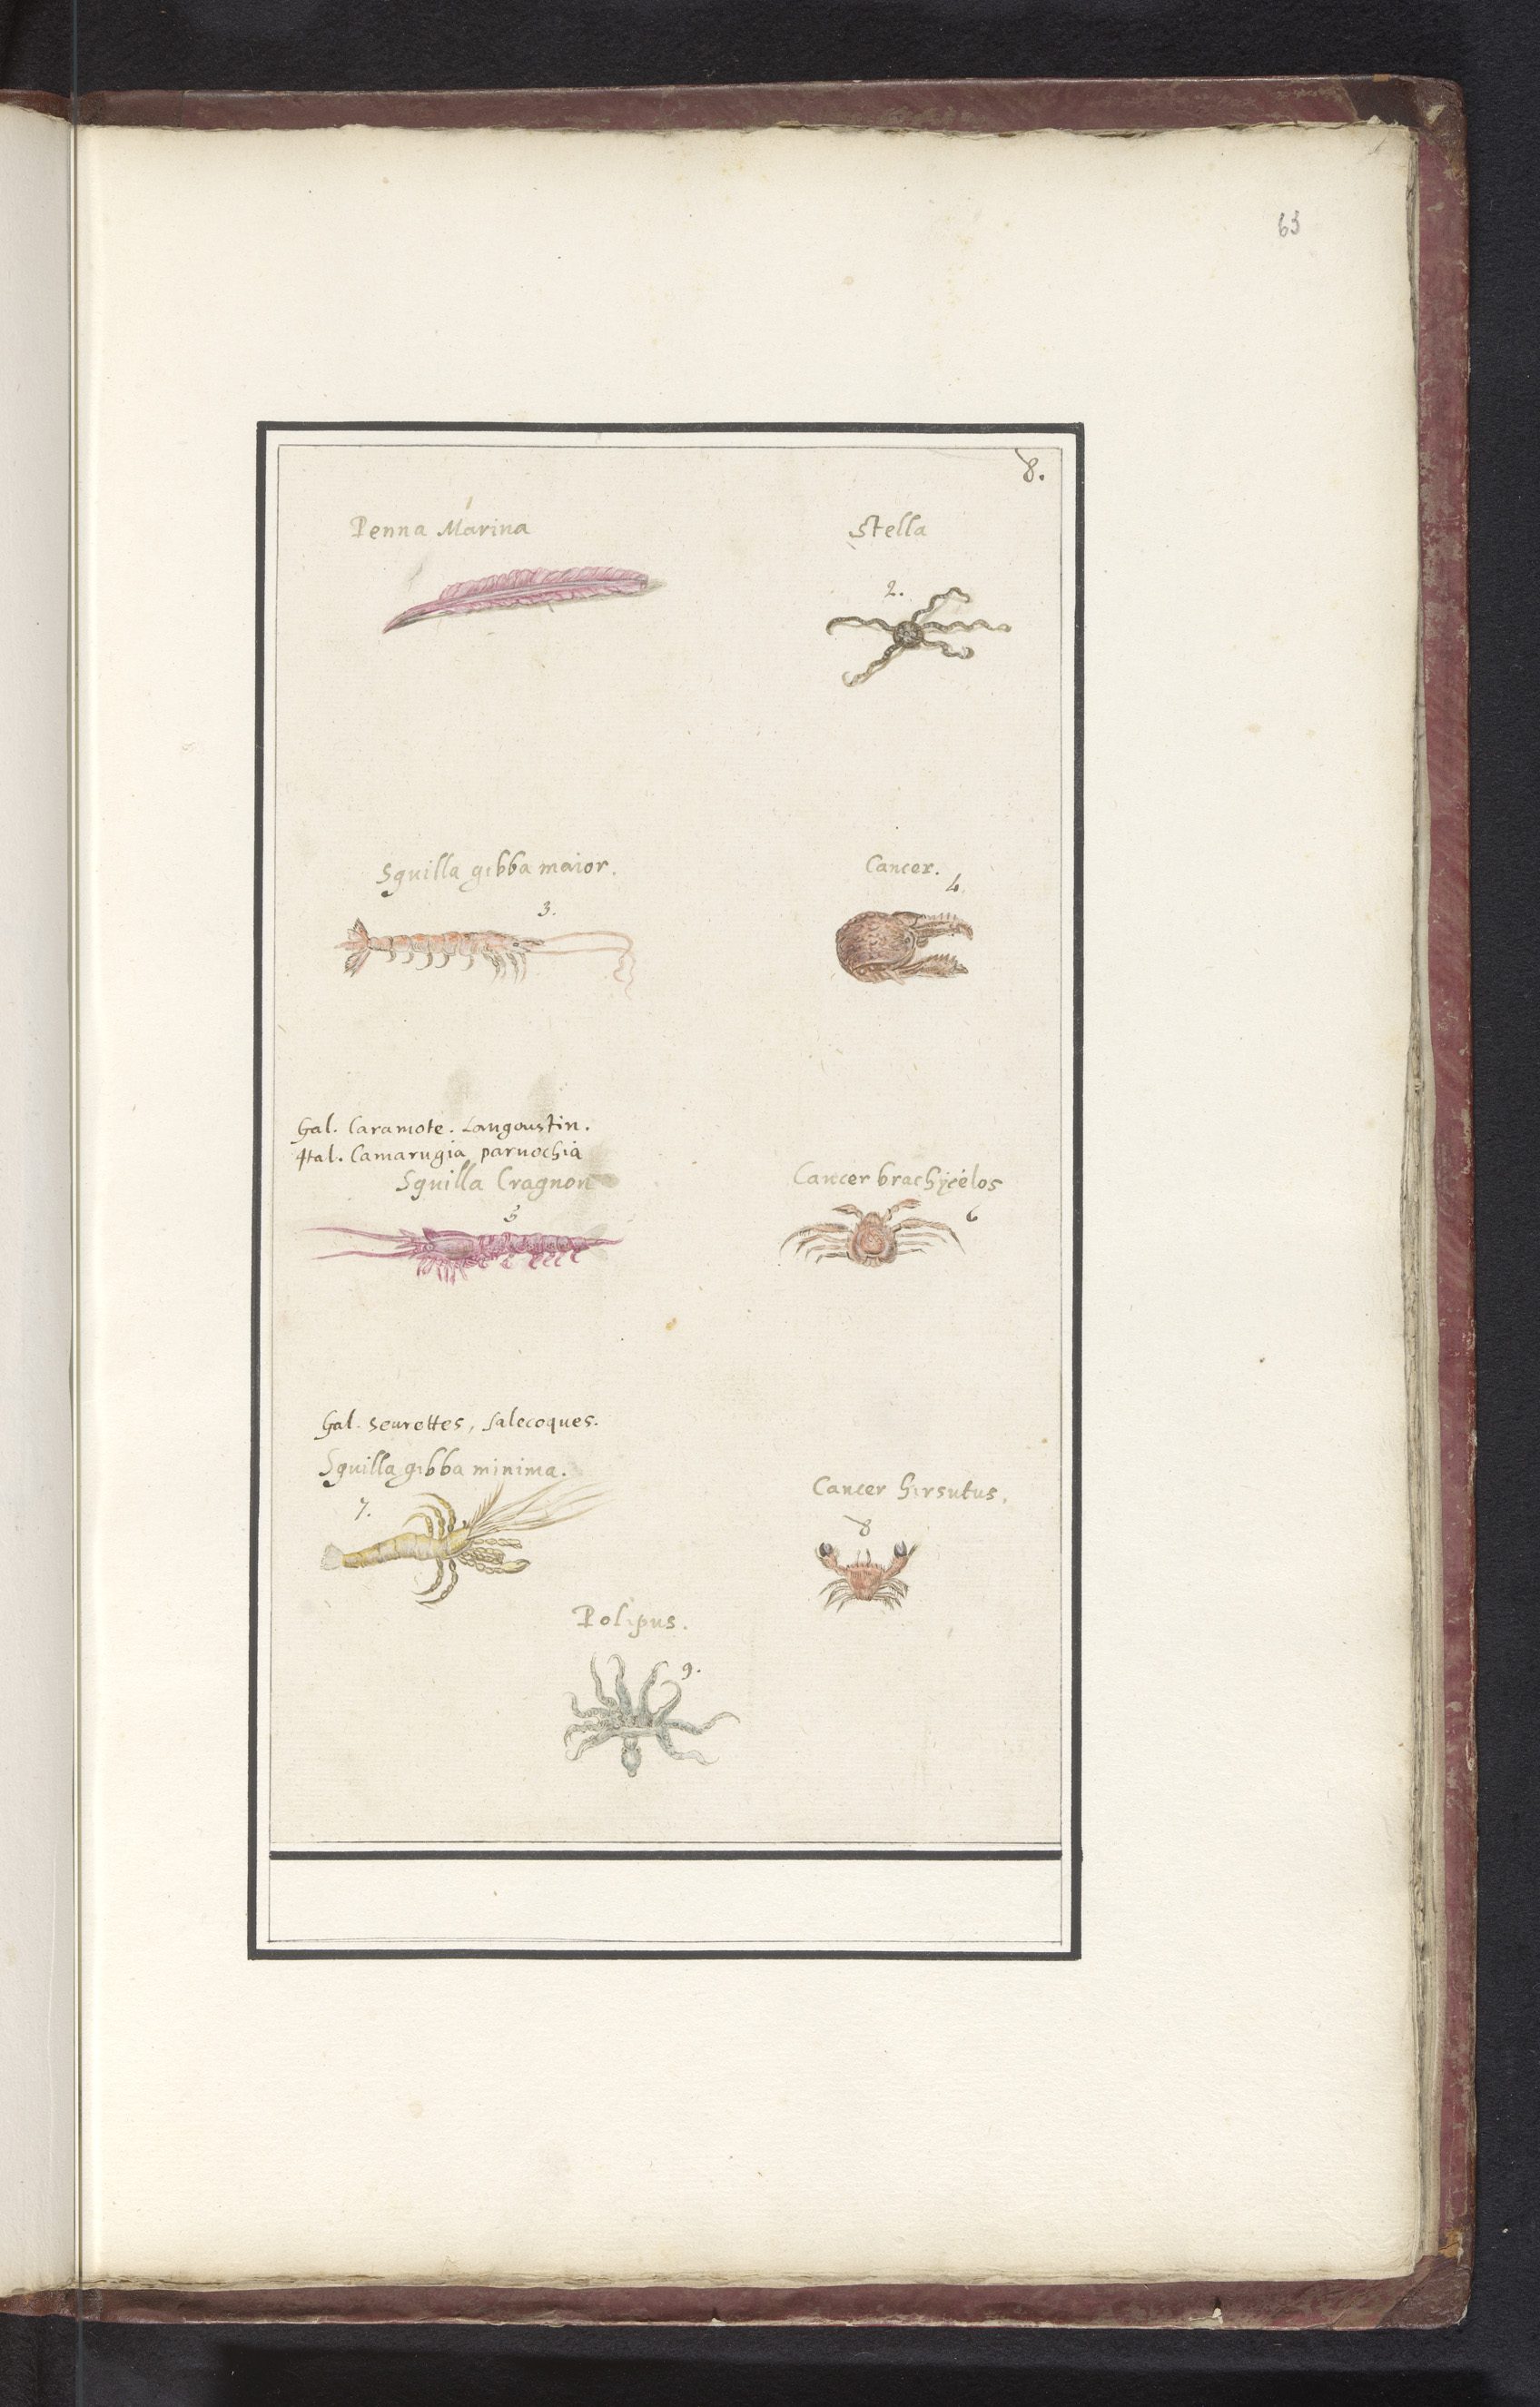 63
8.
1
Penna Marina
Stella
2.
Squilla gibba maior.
3.
Cancer.
4.
Gal. Caramote. Langoustin.
Ital. Camarugia parnochia
Squilla Cragnon
5
Cancer brachÿcèlos
6
Gal. seurettes, salecoques.
Squilla gibba minima.
7.
Cancer hirsutus.
8
Polipus.
9.